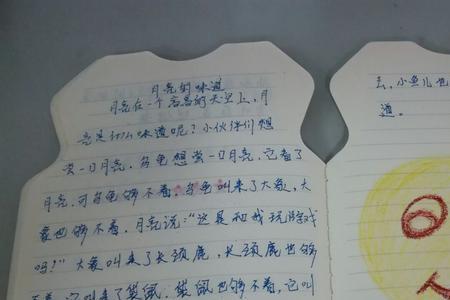 月亮的味道
月亮在一个高高的天空上,月
亮是什么味道呢?小伙伴们想
尝一口月亮,乌龟想尝一口月亮,它看了
月亮,可乌龟够不着,乌龟叫来了大象,大
象也够不着,月亮说:“这是和我玩游戏
吗!”大象叫来了长颈鹿,长颈鹿也够
着,它叫来了袋鼠,袋鼠也够不着,它叫
去,小鱼儿也
道。